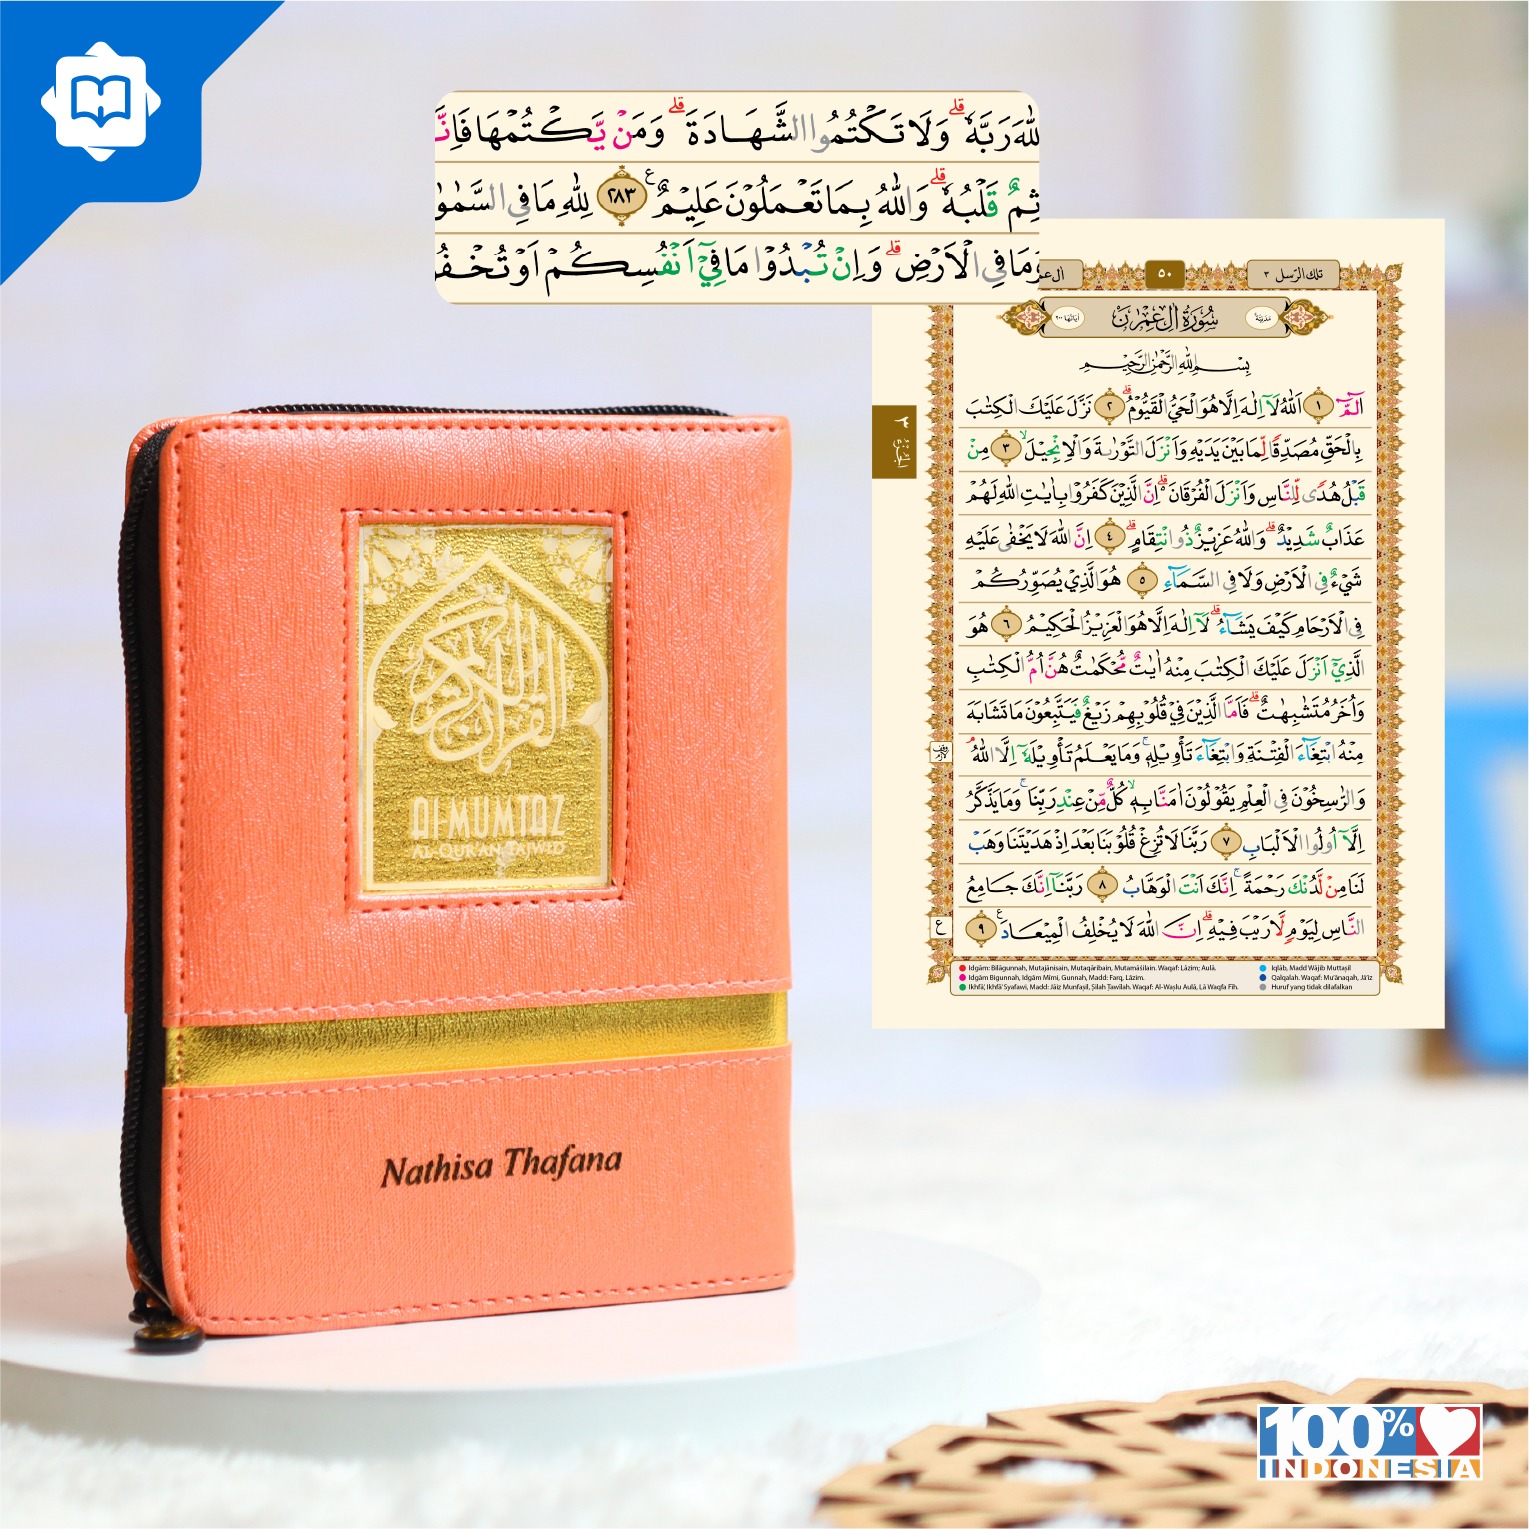 اللهَ رَبَّهٗ ۗ وَلَا تَكْتُمُوا الشَّهَادَةَ ۗ وَمَنْ يَّكْتُمْهَا فَاِنَّ
ثِمٌ قَلْبُهٗ ۗ وَاللهُ بِمَا تَعْمَلُوْنَ عَلِيْمٌ ࣖ ٢٨٣ لِلّٰهِ مَا فِى السَّمٰوٰ
وَمَا فِى الْاَرْضِ ۗ وَاِنْ تُبْدُوْا مَا فِيْٓ اَنْفُسِكُمْ اَوْ تُخْفُو
تلك الرّسل ٣
٥٠
اٰل ع
مَدَنِيَّةٌ
سُوْرَةُ اٰلِ عِمْرٰنَ
اٰيَاتُهَا ٢٠٠
بِسْمِ اللهِ الرَّحْمٰنِ الرَّحِيْمِ
الۤمّۤ ١ اَللهُ لَآ اِلٰهَ اِلَّا هُوَ الْحَيُّ الْقَيُّوْمُ ۗ ٢ نَزَّلَ عَلَيْكَ الْكِتٰبَ
بِالْحَقِّ مُصَدِّقًا لِّمَا بَيْنَ يَدَيْهِ وَاَنْزَلَ التَّوْرٰىةَ وَالْاِنْجِيْلَ ۙ ٣ مِنْ
قَبْلُ هُدًى لِّلنَّاسِ وَاَنْزَلَ الْفُرْقَانَ ەۗ اِنَّ الَّذِيْنَ كَفَرُوْا بِاٰيٰتِ اللهِ لَهُمْ
عَذَابٌ شَدِيْدٌ ۗ وَاللهُ عَزِيْزٌ ذُو انْتِقَامٍ ۗ ٤ اِنَّ اللهَ لَا يَخْفٰى عَلَيْهِ
شَيْءٌ فِى الْاَرْضِ وَلَا فِى السَّمَآءِ ٥ هُوَ الَّذِيْ يُصَوِّرُكُمْ
فِى الْاَرْحَامِ كَيْفَ يَشَآءُ ۗ لَآ اِلٰهَ اِلَّا هُوَ الْعَزِيْزُ الْحَكِيْمُ ٦ هُوَ
الَّذِيْٓ اَنْزَلَ عَلَيْكَ الْكِتٰبَ مِنْهُ اٰيٰتٌ مُّحْكَمٰتٌ هُنَّ اُمُّ الْكِتٰبِ
وَاُخَرُ مُتَشٰبِهٰتٌ ۗ فَاَمَّا الَّذِيْنَ فِيْ قُلُوْبِهِمْ زَيْغٌ فَيَتَّبِعُوْنَ مَا تَشَابَهَ
مِنْهُ ابْتِغَآءَ الْفِتْنَةِ وَابْتِغَآءَ تَأْوِيْلِهٖ ۚ وَمَا يَعْلَمُ تَأْوِيْلَهٗٓ اِلَّا اللهُ ۘ
وَالرّٰسِخُوْنَ فِى الْعِلْمِ يَقُوْلُوْنَ اٰمَنَّا بِهٖ ۙ كُلٌّ مِّنْ عِنْدِ رَبِّنَا ۚ وَمَا يَذَّكَّرُ
اِلَّآ اُولُوا الْاَلْبَابِ ٧ رَبَّنَا لَا تُزِغْ قُلُوْبَنَا بَعْدَ اِذْ هَدَيْتَنَا وَهَبْ
لَنَا مِنْ لَّدُنْكَ رَحْمَةً ۚ اِنَّكَ اَنْتَ الْوَهَّابُ ٨ رَبَّنَآ اِنَّكَ جَامِعُ
النَّاسِ لِيَوْمٍ لَّا رَيْبَ فِيْهِ ۗ اِنَّ اللهَ لَا يُخْلِفُ الْمِيْعَادَ ࣖ ٩
الجُزْءُ ٣
وقف لازم
ع
Idgām: Bilāgunnah, Mutajānisain, Mutaqāribain, Mutamāśilain. Waqaf: Lāzim; Aulā.
Idgām Bigunnah, Idgām Mīmi, Gunnah, Madd: Farq, Lāzim.
Ikhfā', Ikhfā' Syafawi, Madd: Jāiz Munfaṣil, Ṣilah Ṭawīlah. Waqaf: Al-Waṣlu Aulā, Lā Waqfa Fīh.
Iqlāb, Madd Wājib Muttaṣil
Qalqalah. Waqaf: Mu'ānaqah, Jā'iz
Huruf yang tidak dilafalkan
القرآن الكريم
Al-MUMTAZ
AL-QUR'AN TAJWID
Nathisa Thafana
100%
INDONESIA